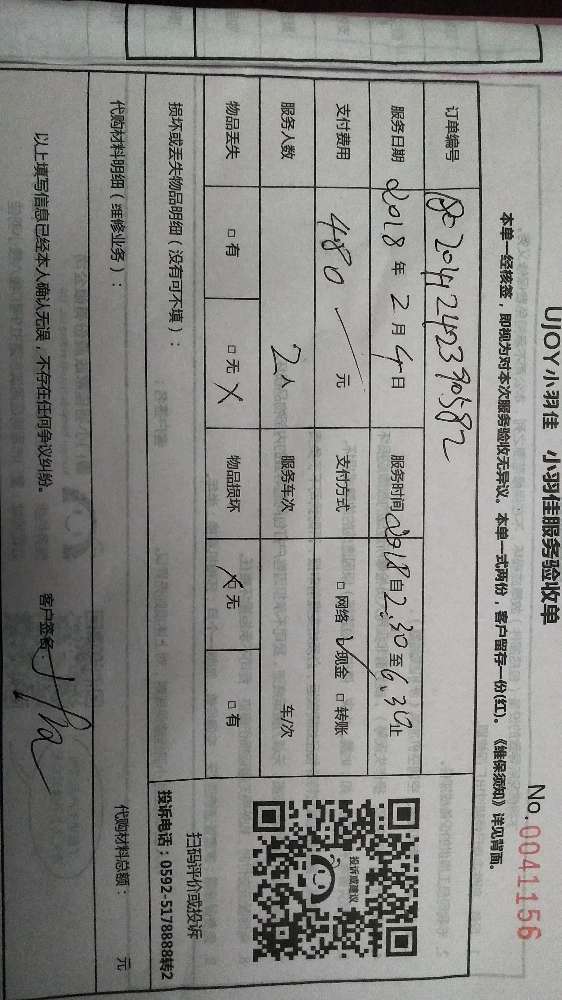 UJOY小羽佳 小羽佳服务验收单
No. 0041156
本单一经核签，即视为对本次服务验收无异议。本单一式两份，客户留存一份(红)。《维保须知》详见背面。
订单编号
服务日期 2018 年 2 月 4 日 服务时间 2018 自 2:30 至 6:30 止
支付费用 480 元 支付方式 □网络 ✓现金 □转账
服务人数 2 人 服务车次 车/次
物品丢失 □有 □无 X 物品损坏 X无 □有
损坏或丢失物品明细（没有可不填）：
代购材料明细（维修业务）： 代购材料总额： 元
以上填写信息已经本人确认无误，不存在任何争议纠纷。 客户签名：
投诉或建议
扫码评价或投诉
投诉电话：0592-5178888转2